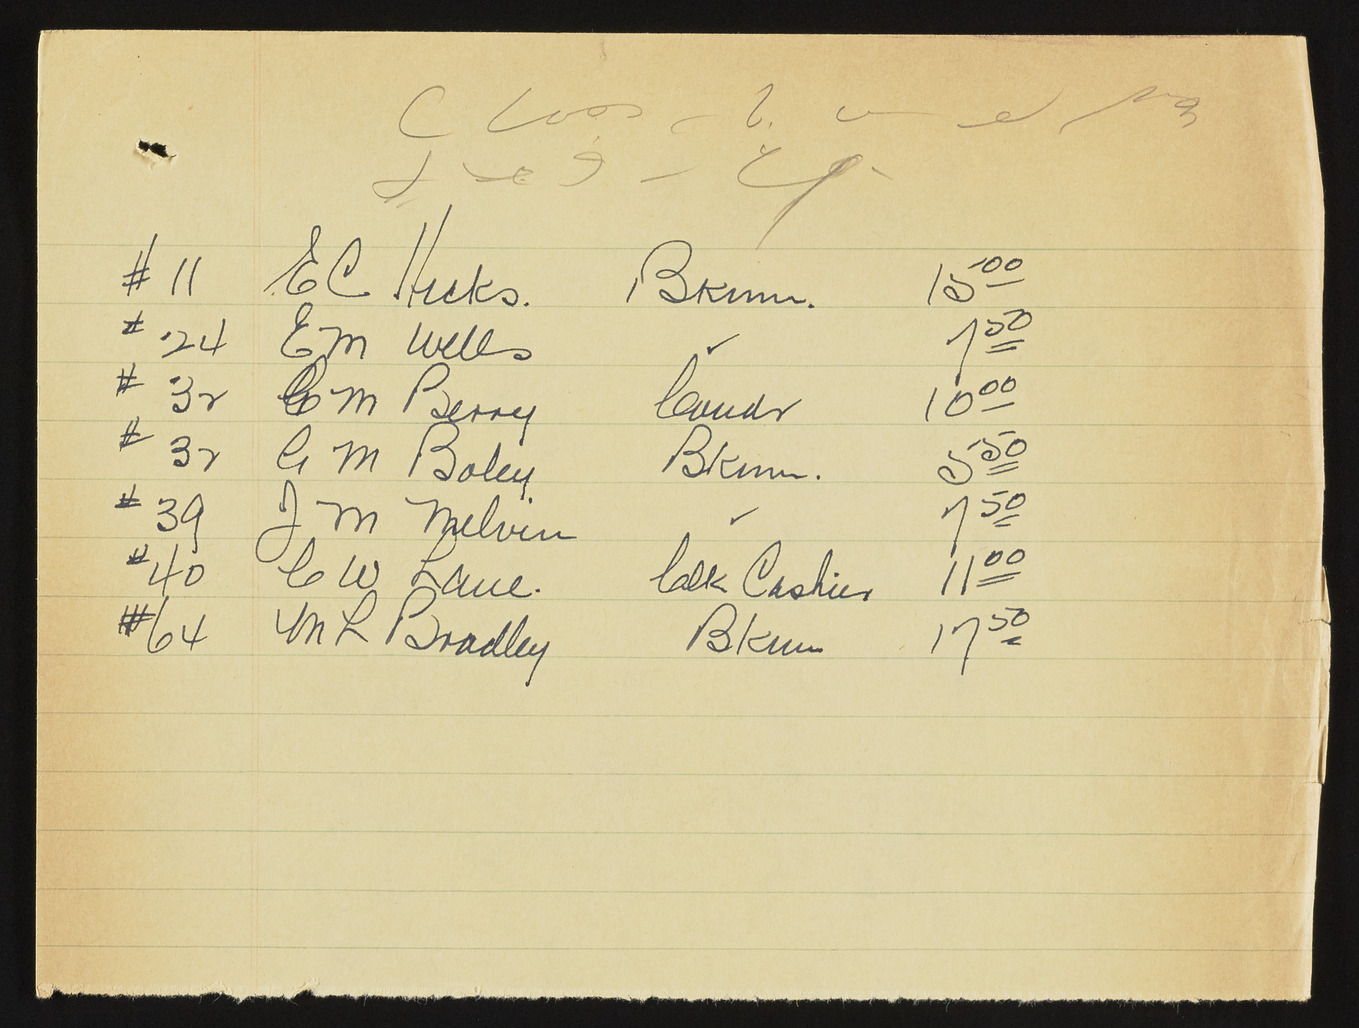 #11 E C Hicks. Bkmn. 15 00
#24 E M Wells ✓ 7 50
#32 C M Berry Condr 10 00
#32 G M Boley Bkmn. 5 50
#39 J M Melvin ✓ 7 50
#40 C W Lane. Clk Cashier 11 00
#64 M L Bradley Bkmn 17 50